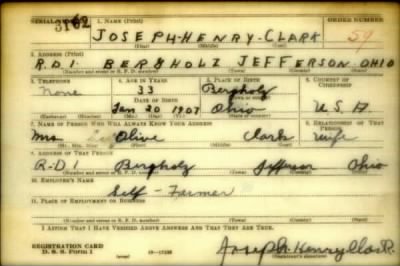 SERIAL NUMBER 1. NAME (Print) ORDER NUMBER
3162 JOSEPH-HENRY-CLARK 59
(First) (Middle) (Last)
2. ADDRESS (Print)
R.D.1 BERGHOLZ JEFFERSON OHIO
(Number and street or R. F. D. number) (Town) (County) (State)
3. TELEPHONE 4. AGE IN YEARS 5. PLACE OF BIRTH 6. COUNTRY OF CITIZENSHIP
None 33 Bergholz
DATE OF BIRTH
Jan 20 1907 Ohio U S A
(Exchange) (Number) (Mo.) (Day) (Yr.) (State or country)
7. NAME OF PERSON WHO WILL ALWAYS KNOW YOUR ADDRESS 8. RELATIONSHIP OF THAT PERSON
Mrs Olive Clark Wife
(Mr., Mrs., Miss) (First) (Middle) (Last)
9. ADDRESS OF THAT PERSON
R-D 1 Bergholz Jefferson Ohio
(Number and street or R. F. D. number) (Town) (County) (State)
10. EMPLOYER'S NAME
Self - Farmer
11. PLACE OF EMPLOYMENT OR BUSINESS
(Number and street or R. F. D. number) (Town) (County) (State)
I AFFIRM THAT I HAVE VERIFIED ABOVE ANSWERS AND THAT THEY ARE TRUE.
REGISTRATION CARD
D. S. S. Form 1 Joseph Henry Clark
(Registrant's signature)